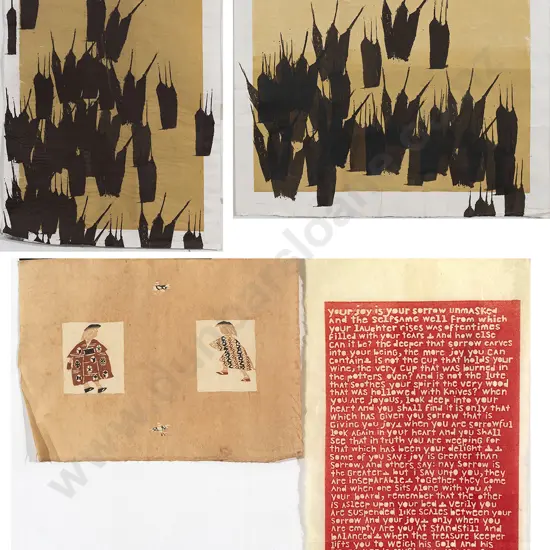 your joy is your sorrow unmasked
And the selfsame well from which
your laughter rises was oftentimes
filled with your tears and how else
can it be? the deeper that sorrow carves
into your being, the more joy you can
contain is not the cup that holds your
wine, the very cup that was burned in
the potters oven? And is not the lute
that soothes your spirit the very wood
that was hollowed with knives? when
you are joyous, look deep into your
heart and you shall find it is only that
which has given you sorrow that is
giving you joy when you are sorrowful
look again in your heart and you shall
see that in truth you are weeping for
that which has been your delight
Some of you say: joy is greater than
sorrow, and others say: nay sorrow is
the greater but i say unto you, they
are inseparable together they come
And when one sits alone with you at
your board, remember that the other
is asleep upon your bed verily you
are suspended like scales between your
sorrow and your joy only when you
are empty are you at standstill and
balanced when the treasure keeper
lifts you to weigh his gold and his